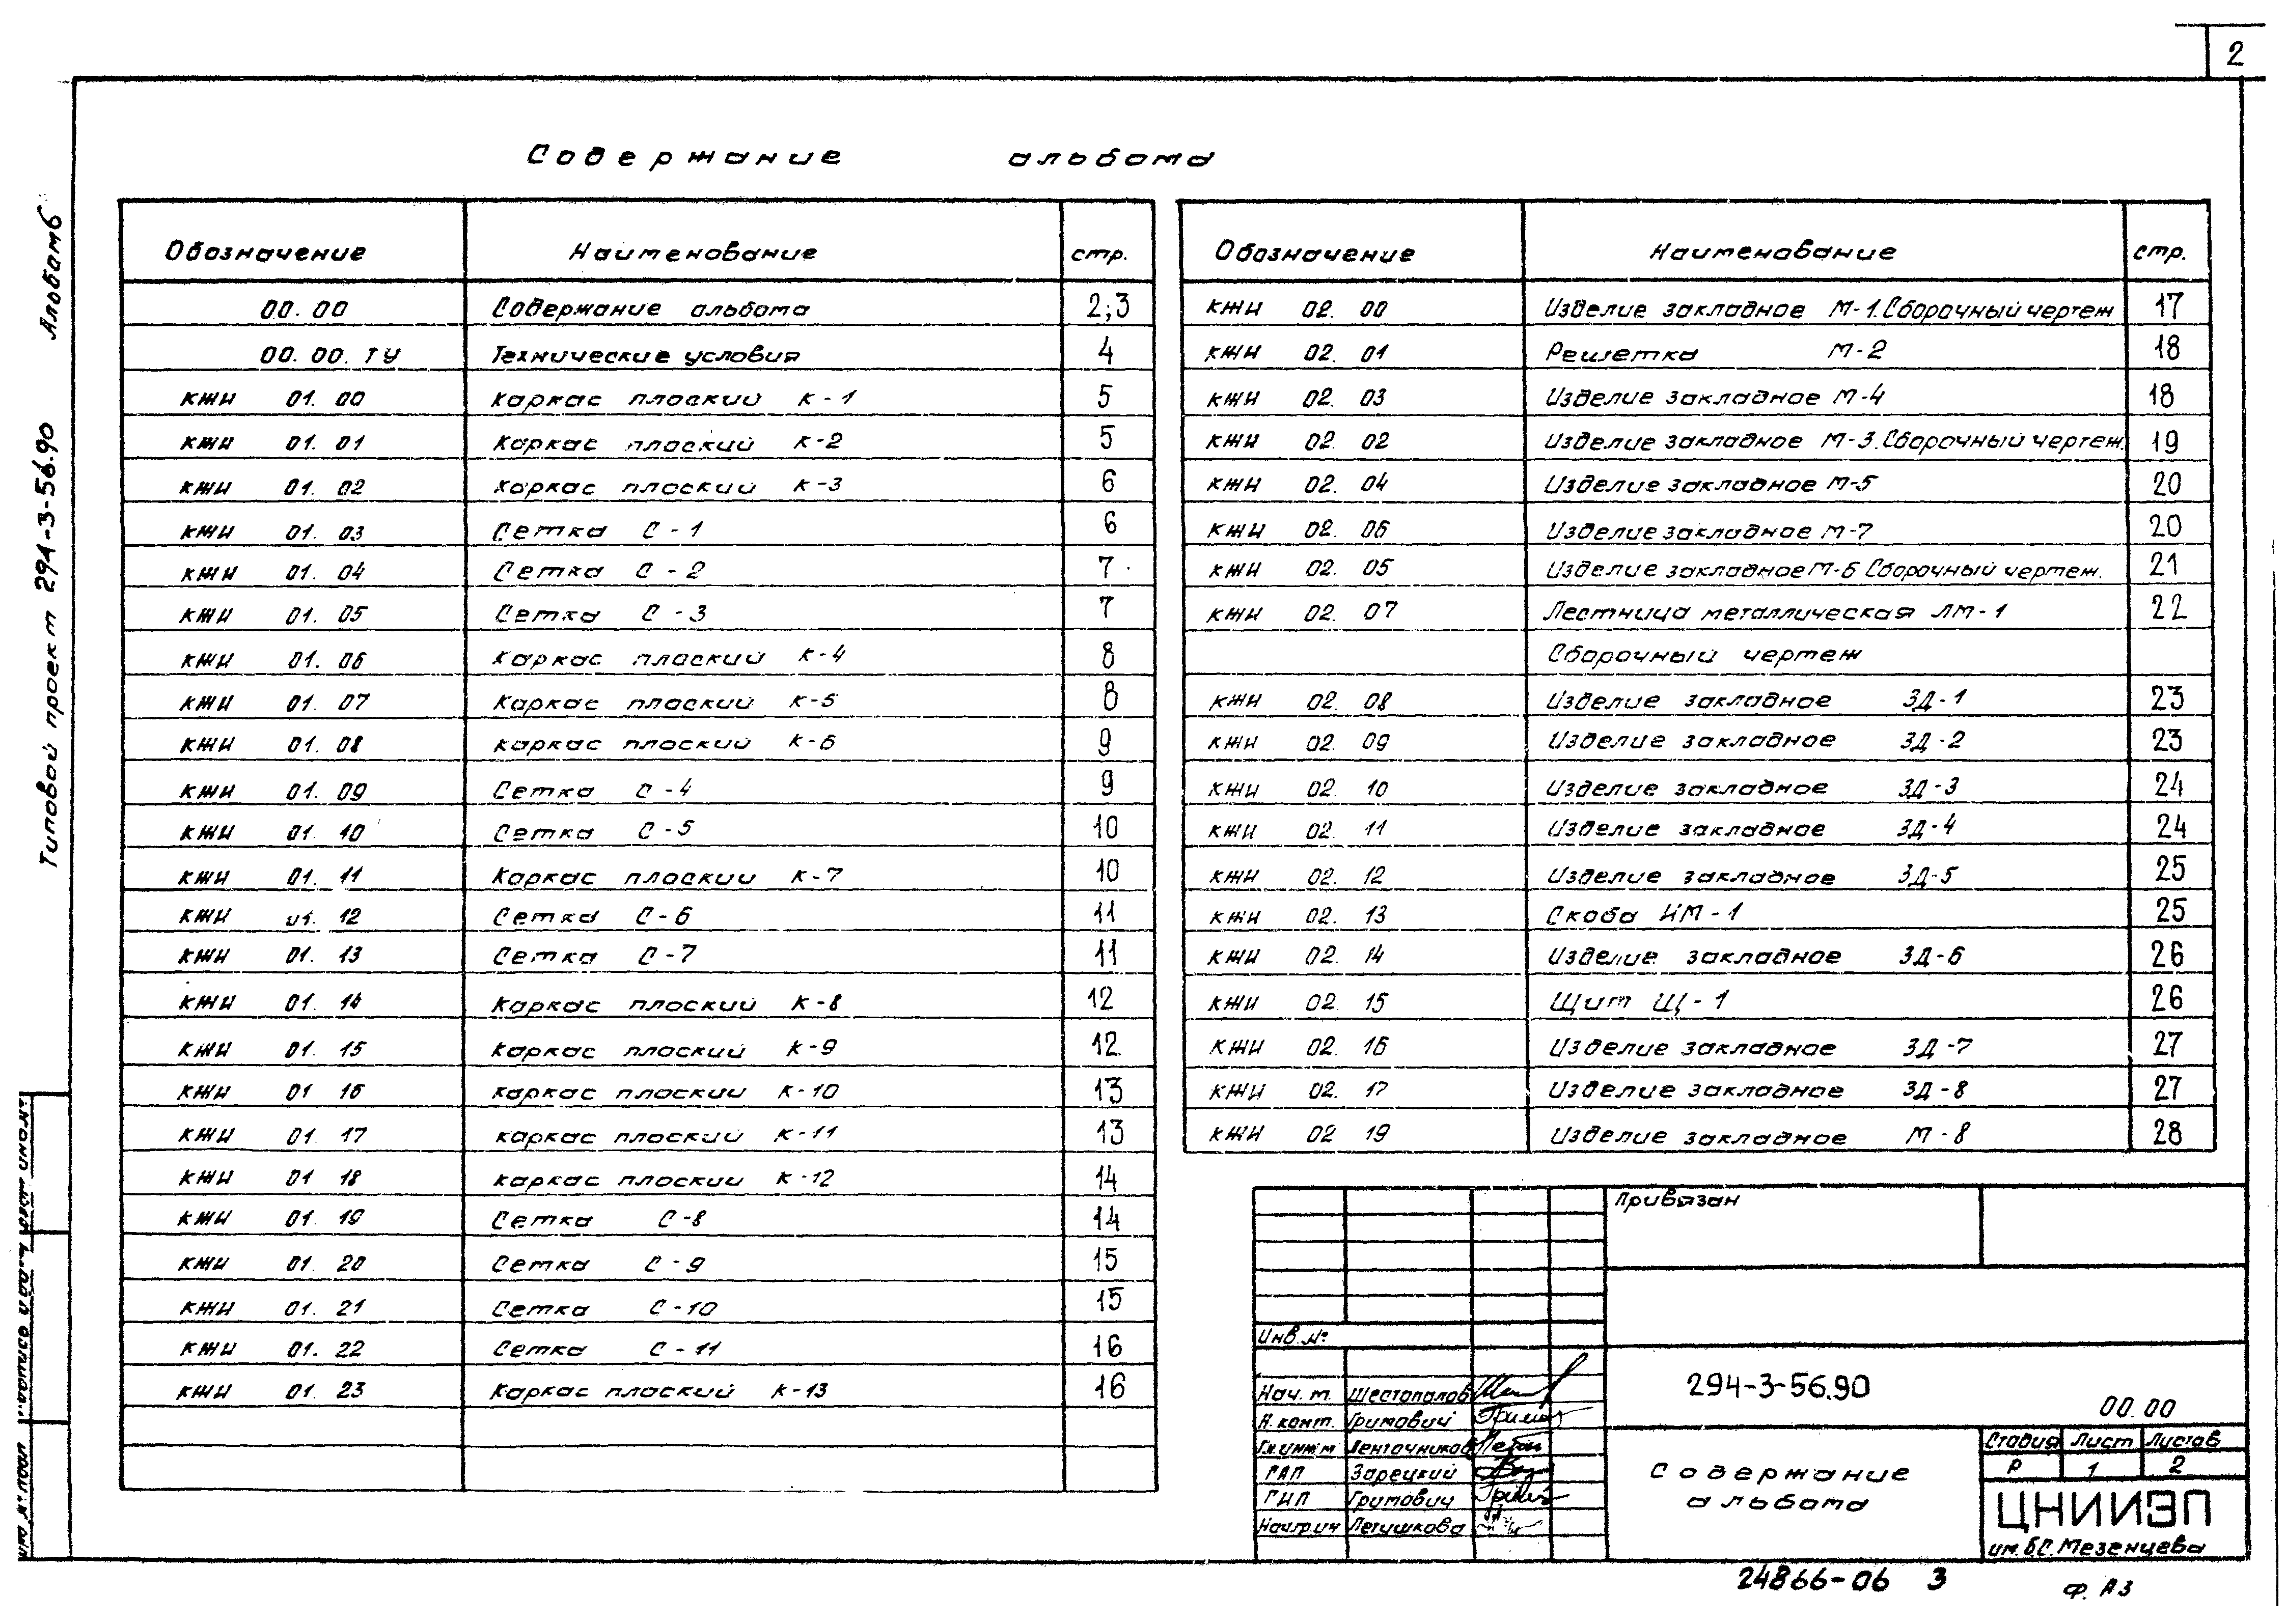 2
Содержание альбома
Типовой проект 294-3-56.90 Альбом 6
Обозначение Наименование стр.
00.00 Содержание альбома 2;3
00.00.ТУ Технические условия 4
КЖИ 01.00 Каркас плоский К-1 5
КЖИ 01.01 Каркас плоский К-2 5
КЖИ 01.02 Каркас плоский К-3 6
КЖИ 01.03 Сетка С-1 6
КЖИ 01.04 Сетка С-2 7
КЖИ 01.05 Сетка С-3 7
КЖИ 01.06 Каркас плоский К-4 8
КЖИ 01.07 Каркас плоский К-5 8
КЖИ 01.08 Каркас плоский К-6 9
КЖИ 01.09 Сетка С-4 9
КЖИ 01.10 Сетка С-5 10
КЖИ 01.11 Каркас плоский К-7 10
КЖИ 01.12 Сетка С-6 11
КЖИ 01.13 Сетка С-7 11
КЖИ 01.14 Каркас плоский К-8 12
КЖИ 01.15 Каркас плоский К-9 12
КЖИ 01 16 Каркас плоский К-10 13
КЖИ 01.17 Каркас плоский К-11 13
КЖИ 01 18 Каркас плоский К-12 14
КЖИ 01.19 Сетка С-8 14
КЖИ 01.20 Сетка С-9 15
КЖИ 01.21 Сетка С-10 15
КЖИ 01.22 Сетка С-11 16
КЖИ 01.23 Каркас плоский К-13 16
Обозначение Наименование стр.
КЖИ 02.00 Изделие закладное М-1.Сборочный чертеж 17
КЖИ 02.01 Решетка М-2 18
КЖИ 02.03 Изделие закладное М-4 18
КЖИ 02.02 Изделие закладное М-3.Сборочный чертеж. 19
КЖИ 02.04 Изделие закладное М-5 20
КЖИ 02.06 Изделие закладное М-7 20
КЖИ 02.05 Изделие закладное М-6 Сборочный чертеж. 21
КЖИ 02.07 Лестница металлическая ЛМ-1 22
Сборочный чертеж
КЖИ 02.08 Изделие закладное ЗД-1 23
КЖИ 02.09 Изделие закладное ЗД-2 23
КЖИ 02.10 Изделие закладное ЗД-3 24
КЖИ 02.11 Изделие закладное ЗД-4 24
КЖИ 02.12 Изделие закладное ЗД-5 25
КЖИ 02.13 Скоба НМ-1 25
КЖИ 02.14 Изделие закладное ЗД-6 26
КЖИ 02.15 Щит Щ-1 26
КЖИ 02.16 Изделие закладное ЗД-7 27
КЖИ 02.17 Изделие закладное ЗД-8 27
КЖИ 02 19 Изделие закладное М-8 28
Привязан
Инв.№
Нач. м. Шестопалов
Н.конт. Гримович
Гл.инж.м Ленточников
ГАП Зарецкий
ГИП Гримович
Нач.гр.ин Летушкова
294-3-56.90 00.00
Содержание
альбома
Стадия Лист Листов
Р 1 2
ЦНИИЭП
им.Б.С.Мезенцева
24866-06 3
Ф. А3